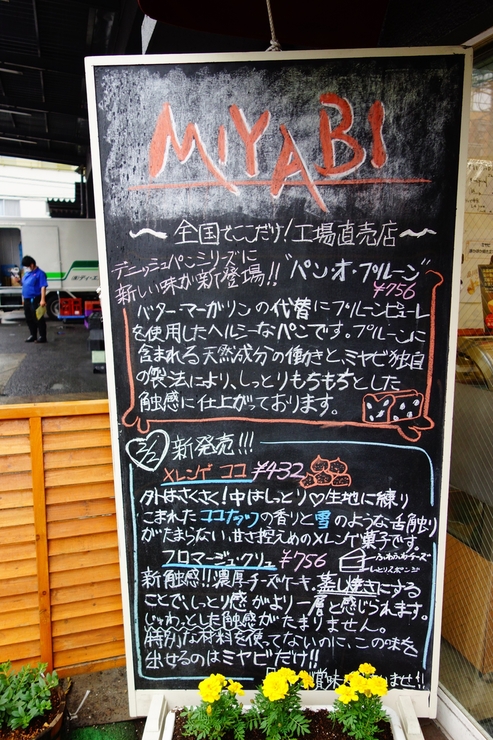 MIYABI
全国でここだけ!工場直売店
デニッシュパンシリーズに
新しい味が新登場!! "パン・オ・プルーン"
¥756
バターマーガリンの代替にプルーンピューレ
を使用したヘルシーなパンです。プルーンに
含まれる天然成分の働きと、ミヤビ独自
の製法により、しっとりもちもちとした
触感に仕上がっております。
新発売!!!
メレンゲ ココ ¥432
外はさくさく!中はしっとり♡生地に練り
こまれたココナッツの香りと雪のような舌触り
がたまらない、甘さ控えめのメレンゲ菓子です。
フロマージュ・クリュ ¥756
ふわふわチーズ
しっとりスポンジ
新触感!!濃厚チーズケーキ、蒸し焼きにする
ことで、しっとり感がより一層と感じられます。
じゅわっとした触感がたまりません。
特別な材料を使ってないのに、この味を
出せるのはミヤビだけ!!
賞味
ませ!!